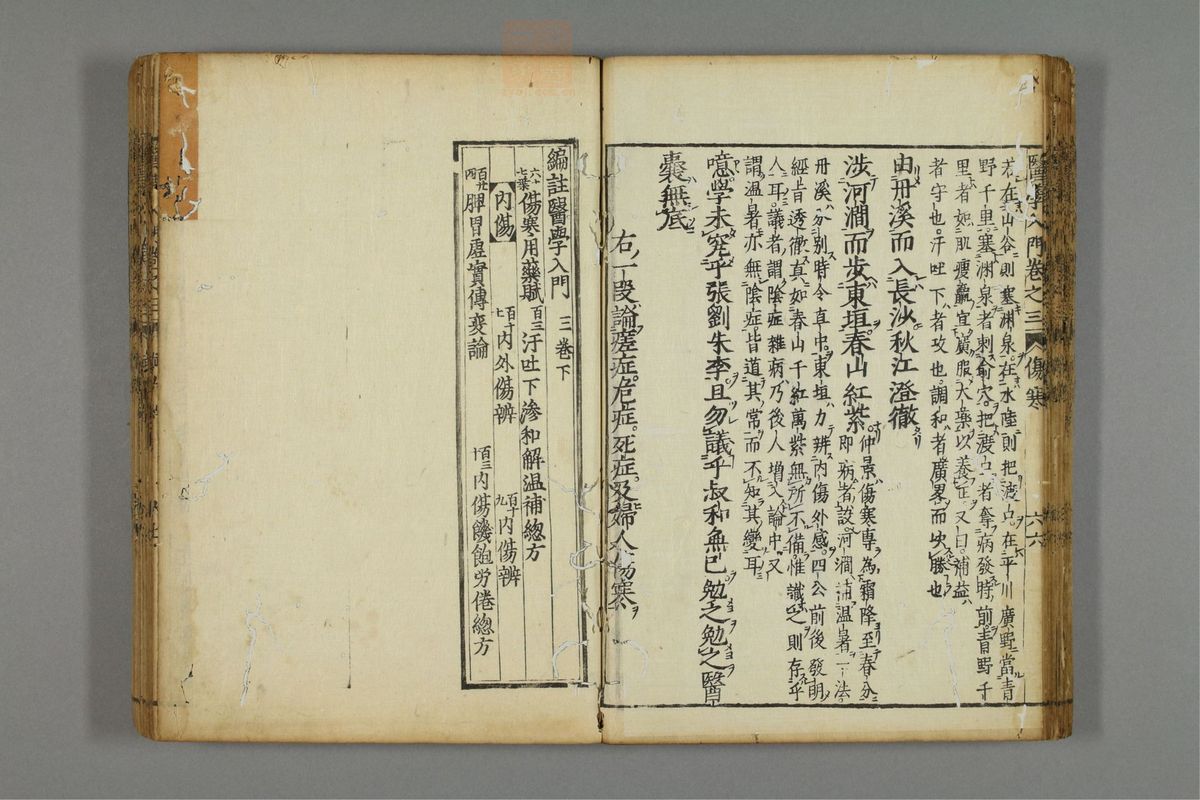 醫學入門卷之三 傷寒 六六
若在山谷則塞淵泉在水陸則把渡口在平川廣野當青
野千里塞淵泉者刺俞穴把渡口者奪病發時前青野千
里者如肌瘦羸宜廣服大藥以養正又曰補益
者守也汗吐下者攻也調和者廣畧而決勝也
由丹溪而入長沙秋江澄徹
涉河澗而步東垣春山紅紫
仲景傷寒專為霜降至春分
即病者設河澗補溫暑一法
丹溪分別時令直中東垣力辨內傷外感四公前後發明
經旨透徹真如春山千紅萬紫無所不備惟識之則存乎
人耳議者謂陰症雜病乃後人增入論中又
謂溫暑亦無陰症皆道其常而不知其變耳
噫學未究乎張劉朱李且勿議乎叔和無已勉之勉之醫
橐無底
右一段論瘥症危症死症及婦人傷寒
編註醫學入門 三卷下
六十七葉 傷寒用藥賦 百三 汗吐下滲和解溫補總方
內傷 百十七 內外傷辨 百十九 內傷辨
百廿四 脾胃虛實傳變論 百三十 內傷饑飽勞倦總方